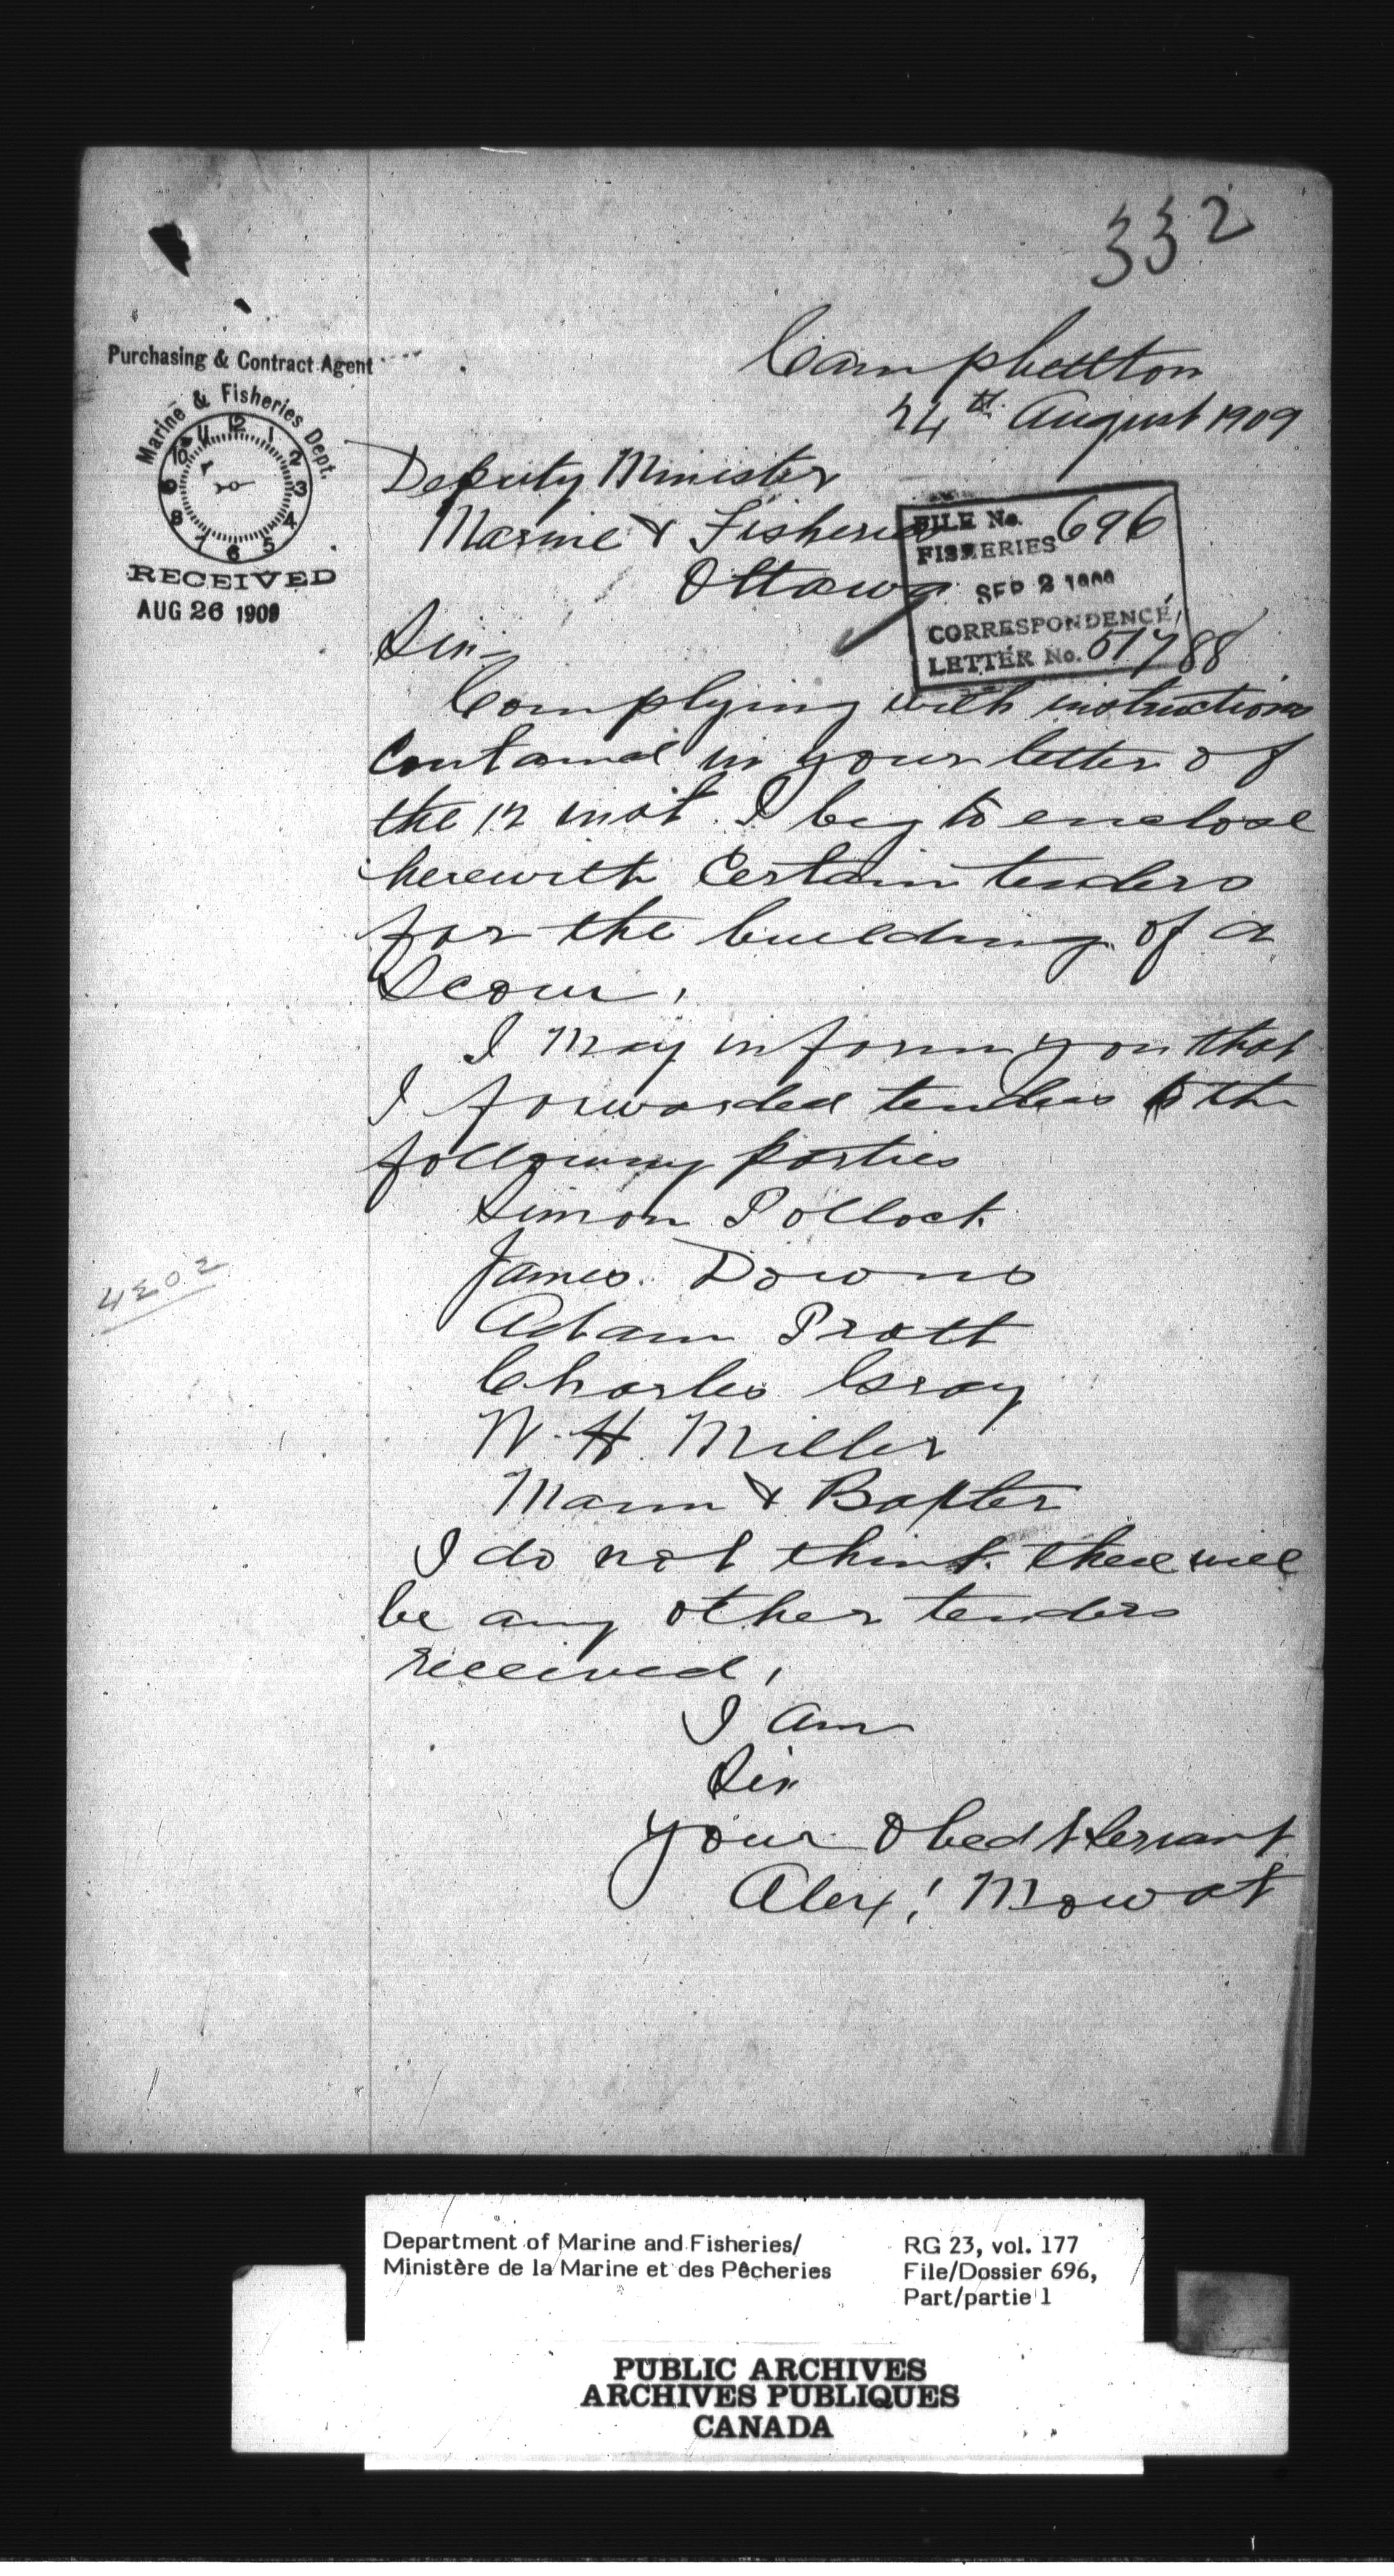 332
Campbellton
24th August 1909
Purchasing & Contract Agent
Marine & Fisheries Dept.
12 1 2 3 4 5 6 7 8 9 10 11
RECEIVED
AUG 26 1909
Deputy Minister
Marine & Fisheries
Ottawa
FILE No. 696
FISHERIES
SEP 2 1909
CORRESPONDENCE
LETTER No. 51788
Sir-
Complying with instructions
Contained in your letter of
the 12 inst. I beg to enclose
herewith Certain tenders
for the building of a
Scow.
I may inform you that
I forwarded tenders to the
following parties
Simon Pollock
James Downs
Adam Pratt
Charles Gray
W. H. Miller
Mann & Baxter
I do not think there will
be any other tenders
received.
I am
Sir
your Obedt Servant
Alex! Mowat
4202
Department of Marine and Fisheries/
Ministère de la Marine et des Pêcheries
RG 23, vol. 177
File/Dossier 696,
Part/partie 1
PUBLIC ARCHIVES
ARCHIVES PUBLIQUES
CANADA